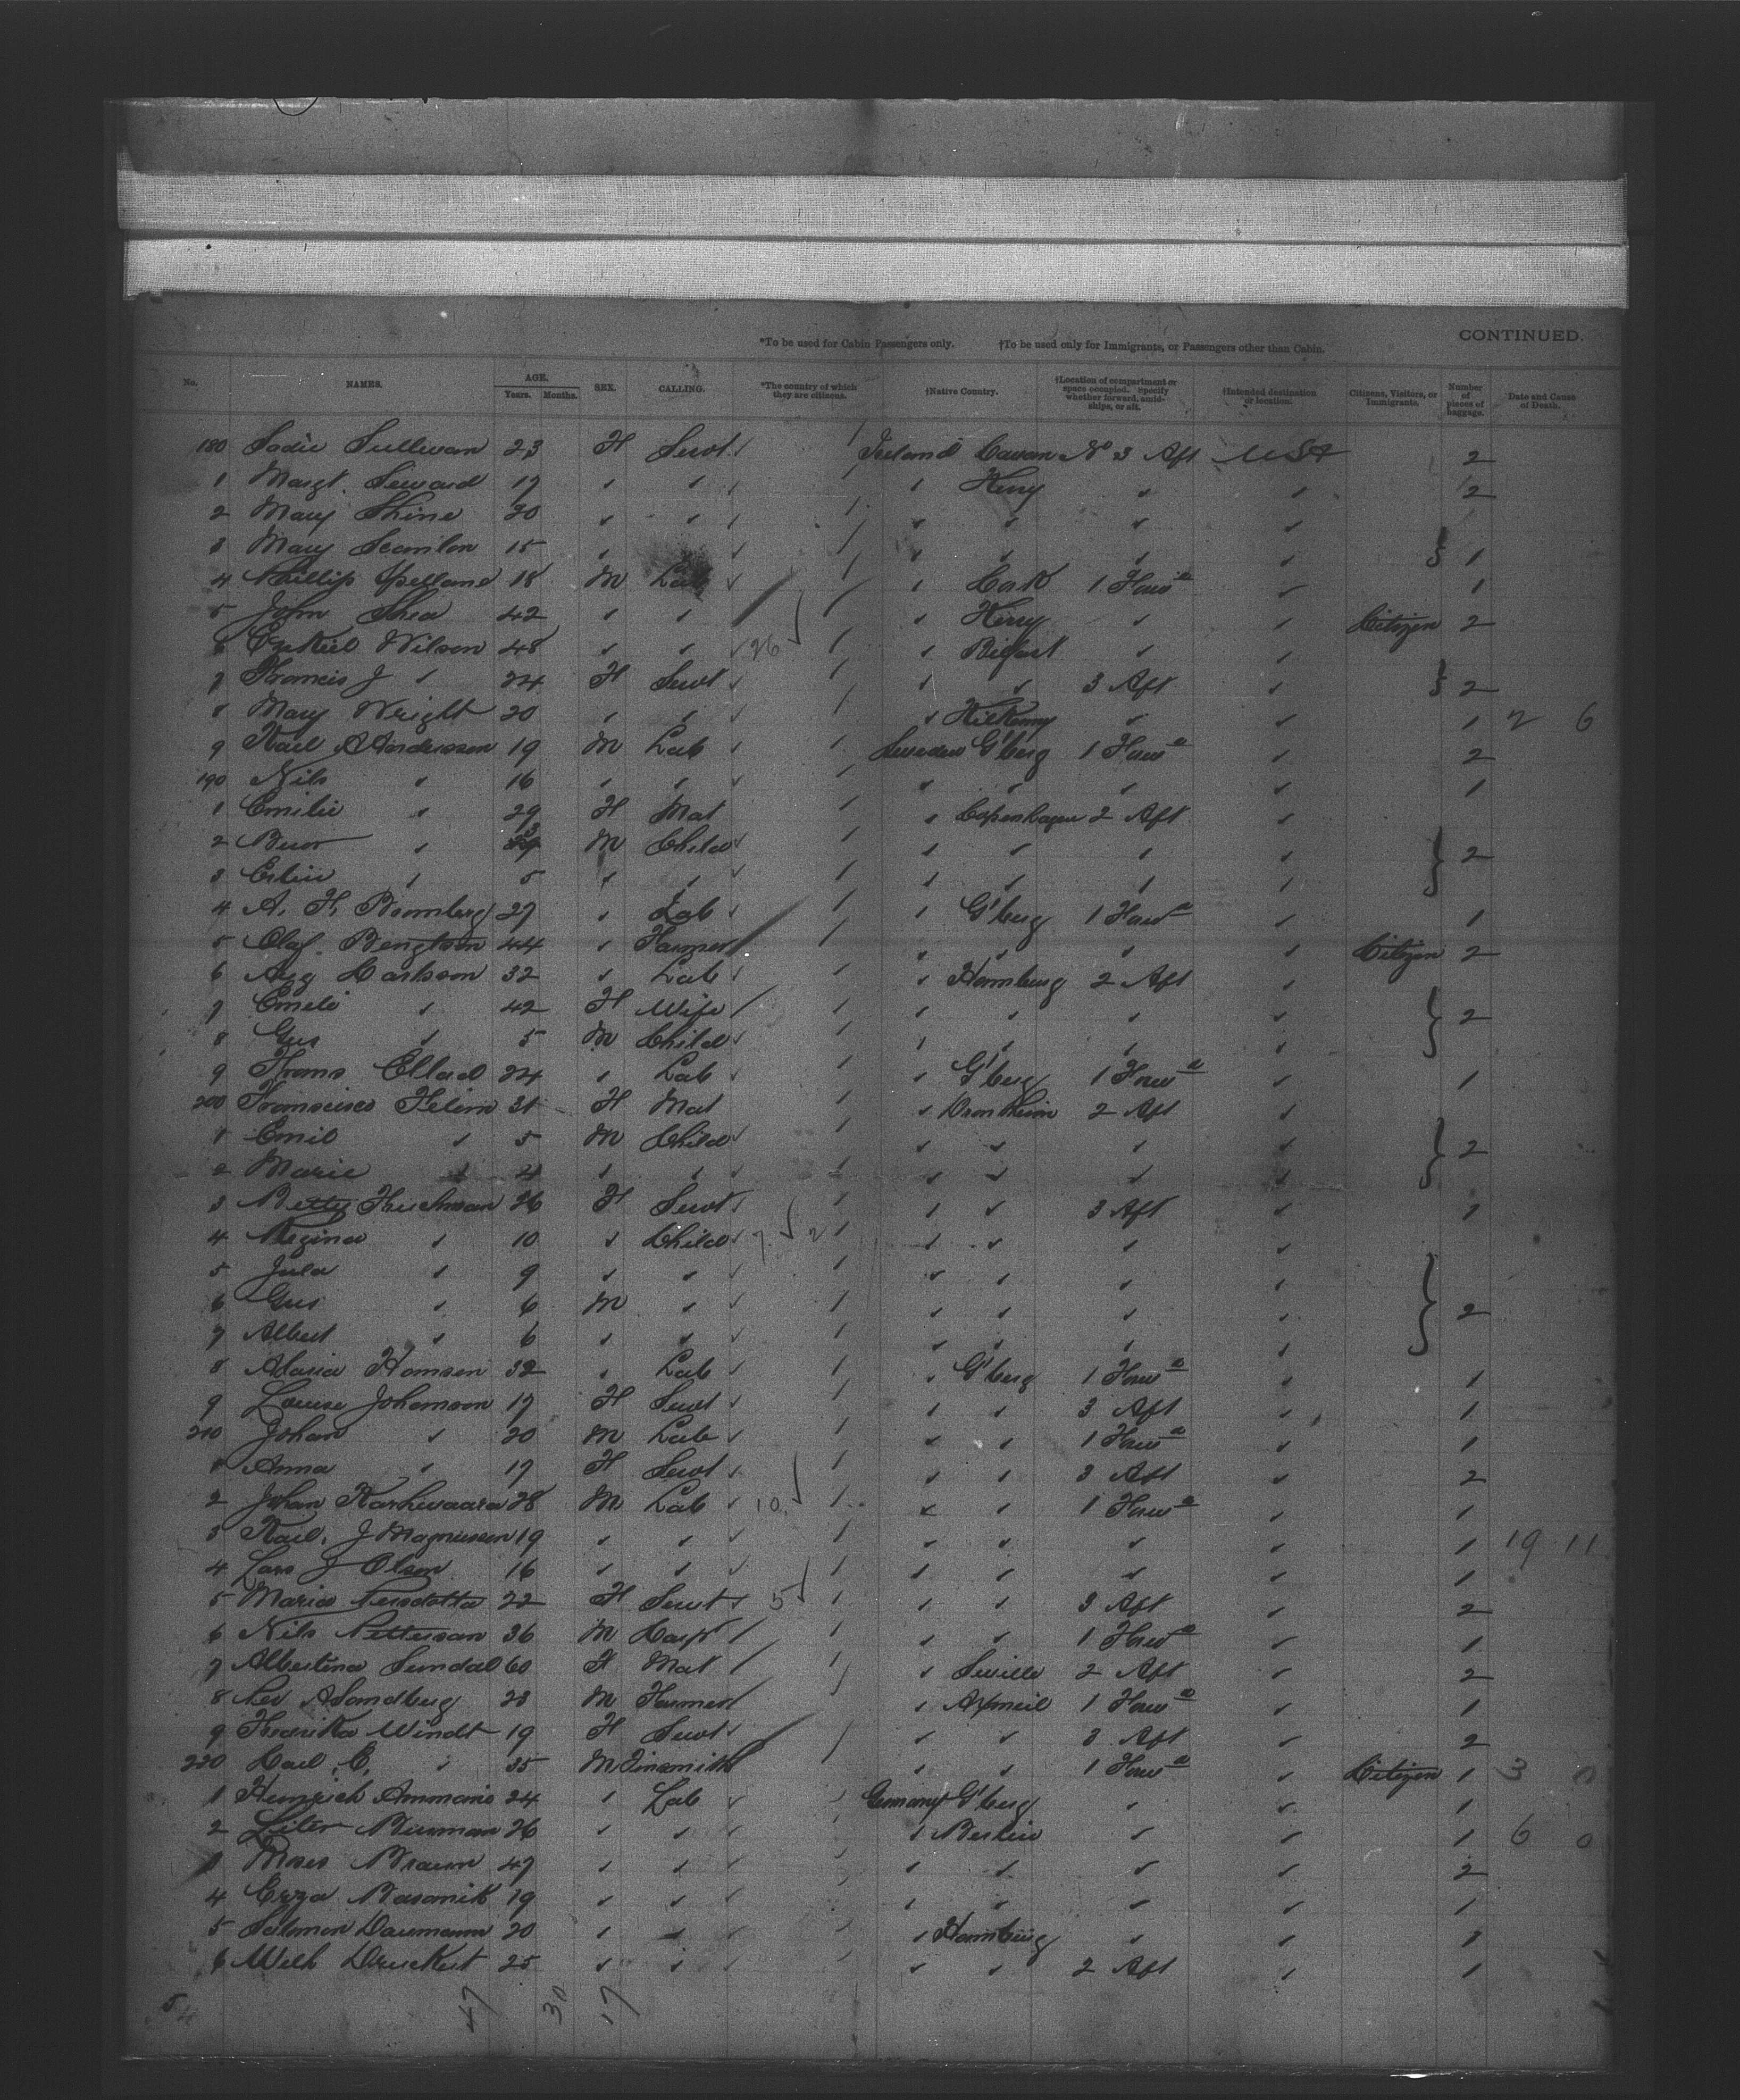 CONTINUED.
*To be used for Cabin Passengers only. †To be used only for Immigrants, or Passengers other than Cabin.
No. NAMES. AGE. Years. Months. SEX. CALLING. *The country of which they are citizens. †Native Country. †Location of compartment or space occupied. Specify whether forward, amidships, or aft. †Intended destination or location. Citizens, Visitors, or Immigrants. Number of pieces of baggage. Date and Cause of Death.
180 Sadie Sullivan 23 F Servt Ireland Cavan No 3 Aft USA 2
1 Margt. Seward 17 " " " Kerry " " 2
2 Mary Shine 20 " " " " " "
3 Mary Scanlon 15 " " " " " " } 1
4 Phillip 18 M Lab " Cork 1 Forwd " 1
5 John Shea 42 " " " Kerry " " Citizen 2
6 Ezekiel Wilson 48 " " 26 " Belfast " "
7 Francis J " 24 F Servt " " 3 Aft " } 2
8 Mary Wright 20 " " " Kilkenny " " 1 2 6
9 Karl A Anderson 19 M Lab Sweden G'berg 1 Forwd " 2
190 Nils " 16 " " " " " " 1
1 Emilie " 29 F Mat " Copenhagen 2 Aft "
2 " M Child " " " " } 2
3 " 5 " " " " " "
4 A. F. Bomberg 27 " Lab " G'berg 1 Forwd " 1
5 Olaf Bengtson 44 " Farmer " " " " Citizen 2
6 Aug Carlsson 32 " Lab " Hamburg 2 Aft "
7 Emeli " 42 F Wife " " " " } 2
8 Gus " 5 M Child " " " "
9 Frans 24 " Lab " G'berg 1 Forwd " 1
200 31 F Mat " Drontheim 2 Aft "
1 Emil " 5 M Child " " " " } 2
2 Marie " 4 " " " " " "
3 Betty 26 F Servt " " 3 Aft " 1
4 Regina " 10 " Child 7 2 " " " "
5 Jula " 9 " " " " " "
6 Gus " 6 M " " " " " } 2
7 Albert " 6 " " " " " "
8 32 " Lab " G'berg 1 Forwd " 1
9 Louise Johanson 17 F Servt " " 3 Aft " 1
210 Johan " 20 M Lab " " 1 Forwd " 1
1 Anna " 17 F Servt " " 3 Aft " 2
2 Johan Karhuvaara 28 M Lab 10 " " 1 Forwd " 1
3 Karl. J Magnusson 19 " " " " " " 1 19 11
4 Lars J Olson 16 " " " " " " 1
5 Maria Persdotta 22 F Servt 5 " " 3 Aft " 2
6 Nils Petterson 36 M Carp " " 1 Forwd " 1
7 Albertina Sundal 60 F Mat " Seville 2 Aft " 2
8 Per A Sandberg 23 M Farmer " 1 Forwd " 1
9 Fredrika Windt 19 F Servt " " 3 Aft " 2
220 Carl C. " 35 M Tinsmith " " 1 Forwd " Citizen 1 3 0
1 Heinrich 24 " Lab Germany G'berg " " 1
2 26 " " " Berlin " " 1 6 0
3 Moses Braun 47 " " " " " " 2
4 19 " " " " " " 1
5 Solomon Daumann 20 " " " Hamburg " " 1
6 Wilh 25 " " " " 2 Aft " 1
47 30 17